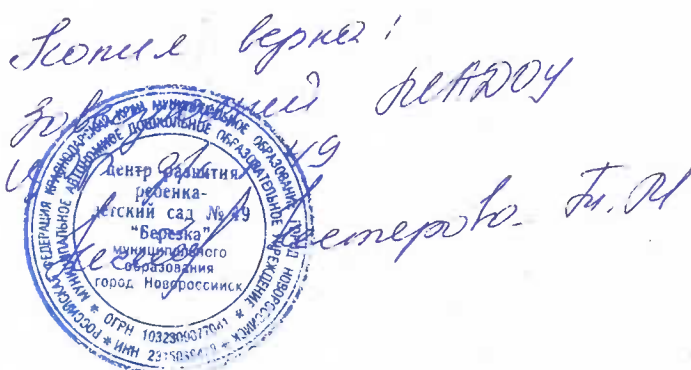 Копия верна!
Заведующий МАДОУ
№ 49
Нестерова Т. М
РОССИЙСКАЯ ФЕДЕРАЦИЯ КРАСНОДАРСКИЙ КРАЙ МУНИЦИПАЛЬНОЕ ОБРАЗОВАНИЕ ГОРОД НОВОРОССИЙСК
МУНИЦИПАЛЬНОЕ АВТОНОМНОЕ ДОШКОЛЬНОЕ ОБРАЗОВАТЕЛЬНОЕ УЧРЕЖДЕНИЕ
центр развития
ребенка-
детский сад № 49
"Березка"
муниципального
образования
город Новороссийск
* ОГРН *
* ИНН *